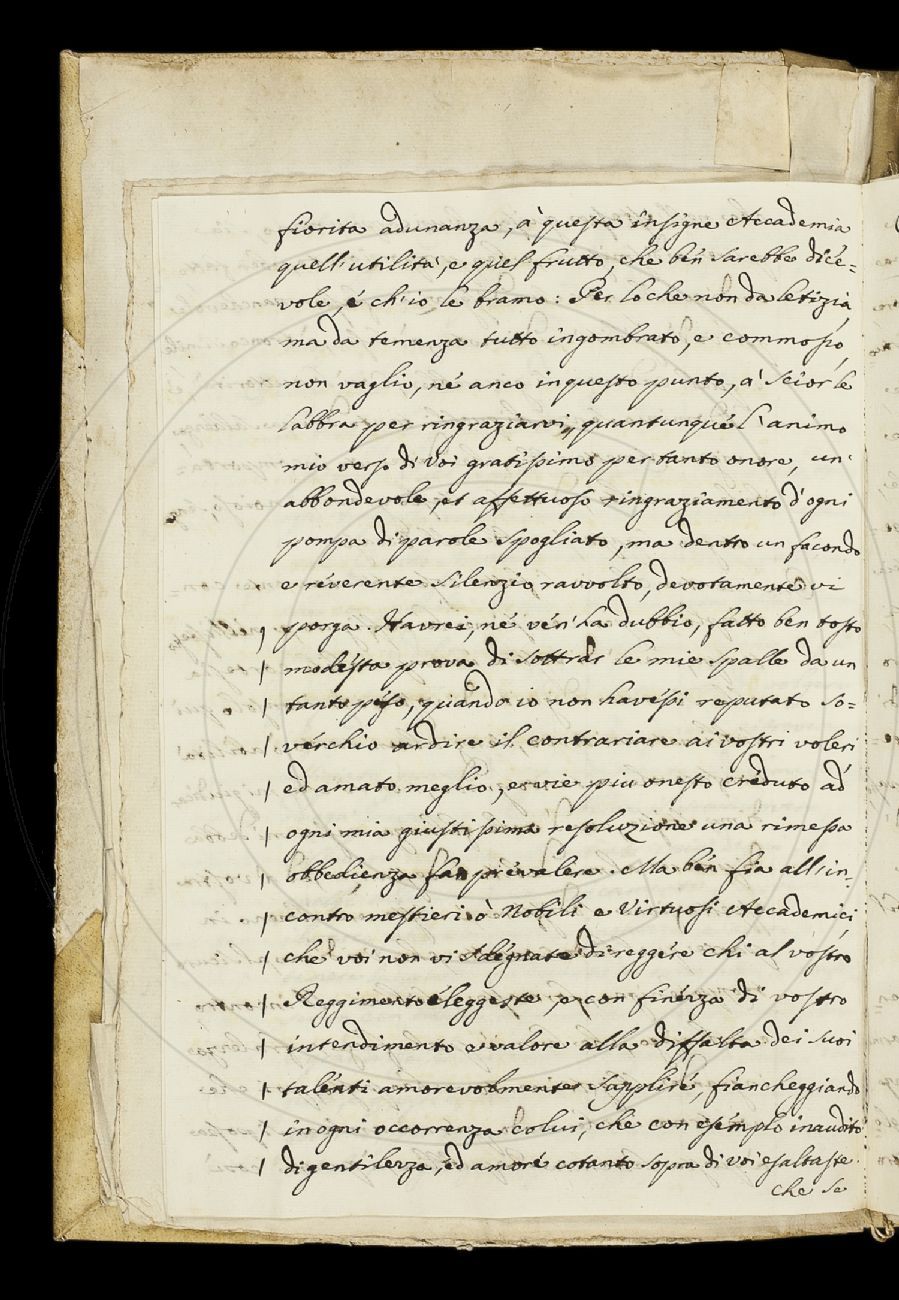 fiorita adunanza, à questa insigne Accademia
quell'utilità, e quel frutto, che bén sarebbe dicé=
vole, é ch'io le bramo: Per lo che non da letizia,
ma da temenza tutto ingombrato, e commosso,
non vaglio, né anco in questo punto, à sciorle
labbra per ringraziarvi, quantunqué l'animo
mio verso di Voi gratissimo per tanto onore, un'
abbondevole, et affettuoso ringraziamento d'ogni
pompa di parole spogliato, ma dentro un facondo
e réverente silenzio ravvolto, devotamente vi
porga. Havrei, né vén'ha dubbio, fatto ben tosto
modésta prova di sottrar le mie spalle da un
tanto péso, quando io non havéssi reputato so=
vérchio ardire il contrariare ai vostri voleri
ed amato meglio, e vie piu onesto créduto ad
ogni mia giustissima resoluzione una rimessa
obbedienza far prévalere. Ma bén fia all'in=
contro mestieri ò Nobili e Virtuosi Accademici,
ché voi non vi sdégnate di reggére chi al vostro
Reggimento éleggeste, e con finézza di vostro
intendimento e valore alla diffalta dei suoi
talénti amorevolmente suppliré, fiancheggiando
in ogni occorrenza colui, ché con esémplo inaudito
di gentilezza, ed amoré cotanto sopra di voi esaltaste.
che se